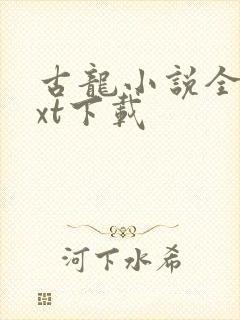 古龍小說全
xt下載
河下水希